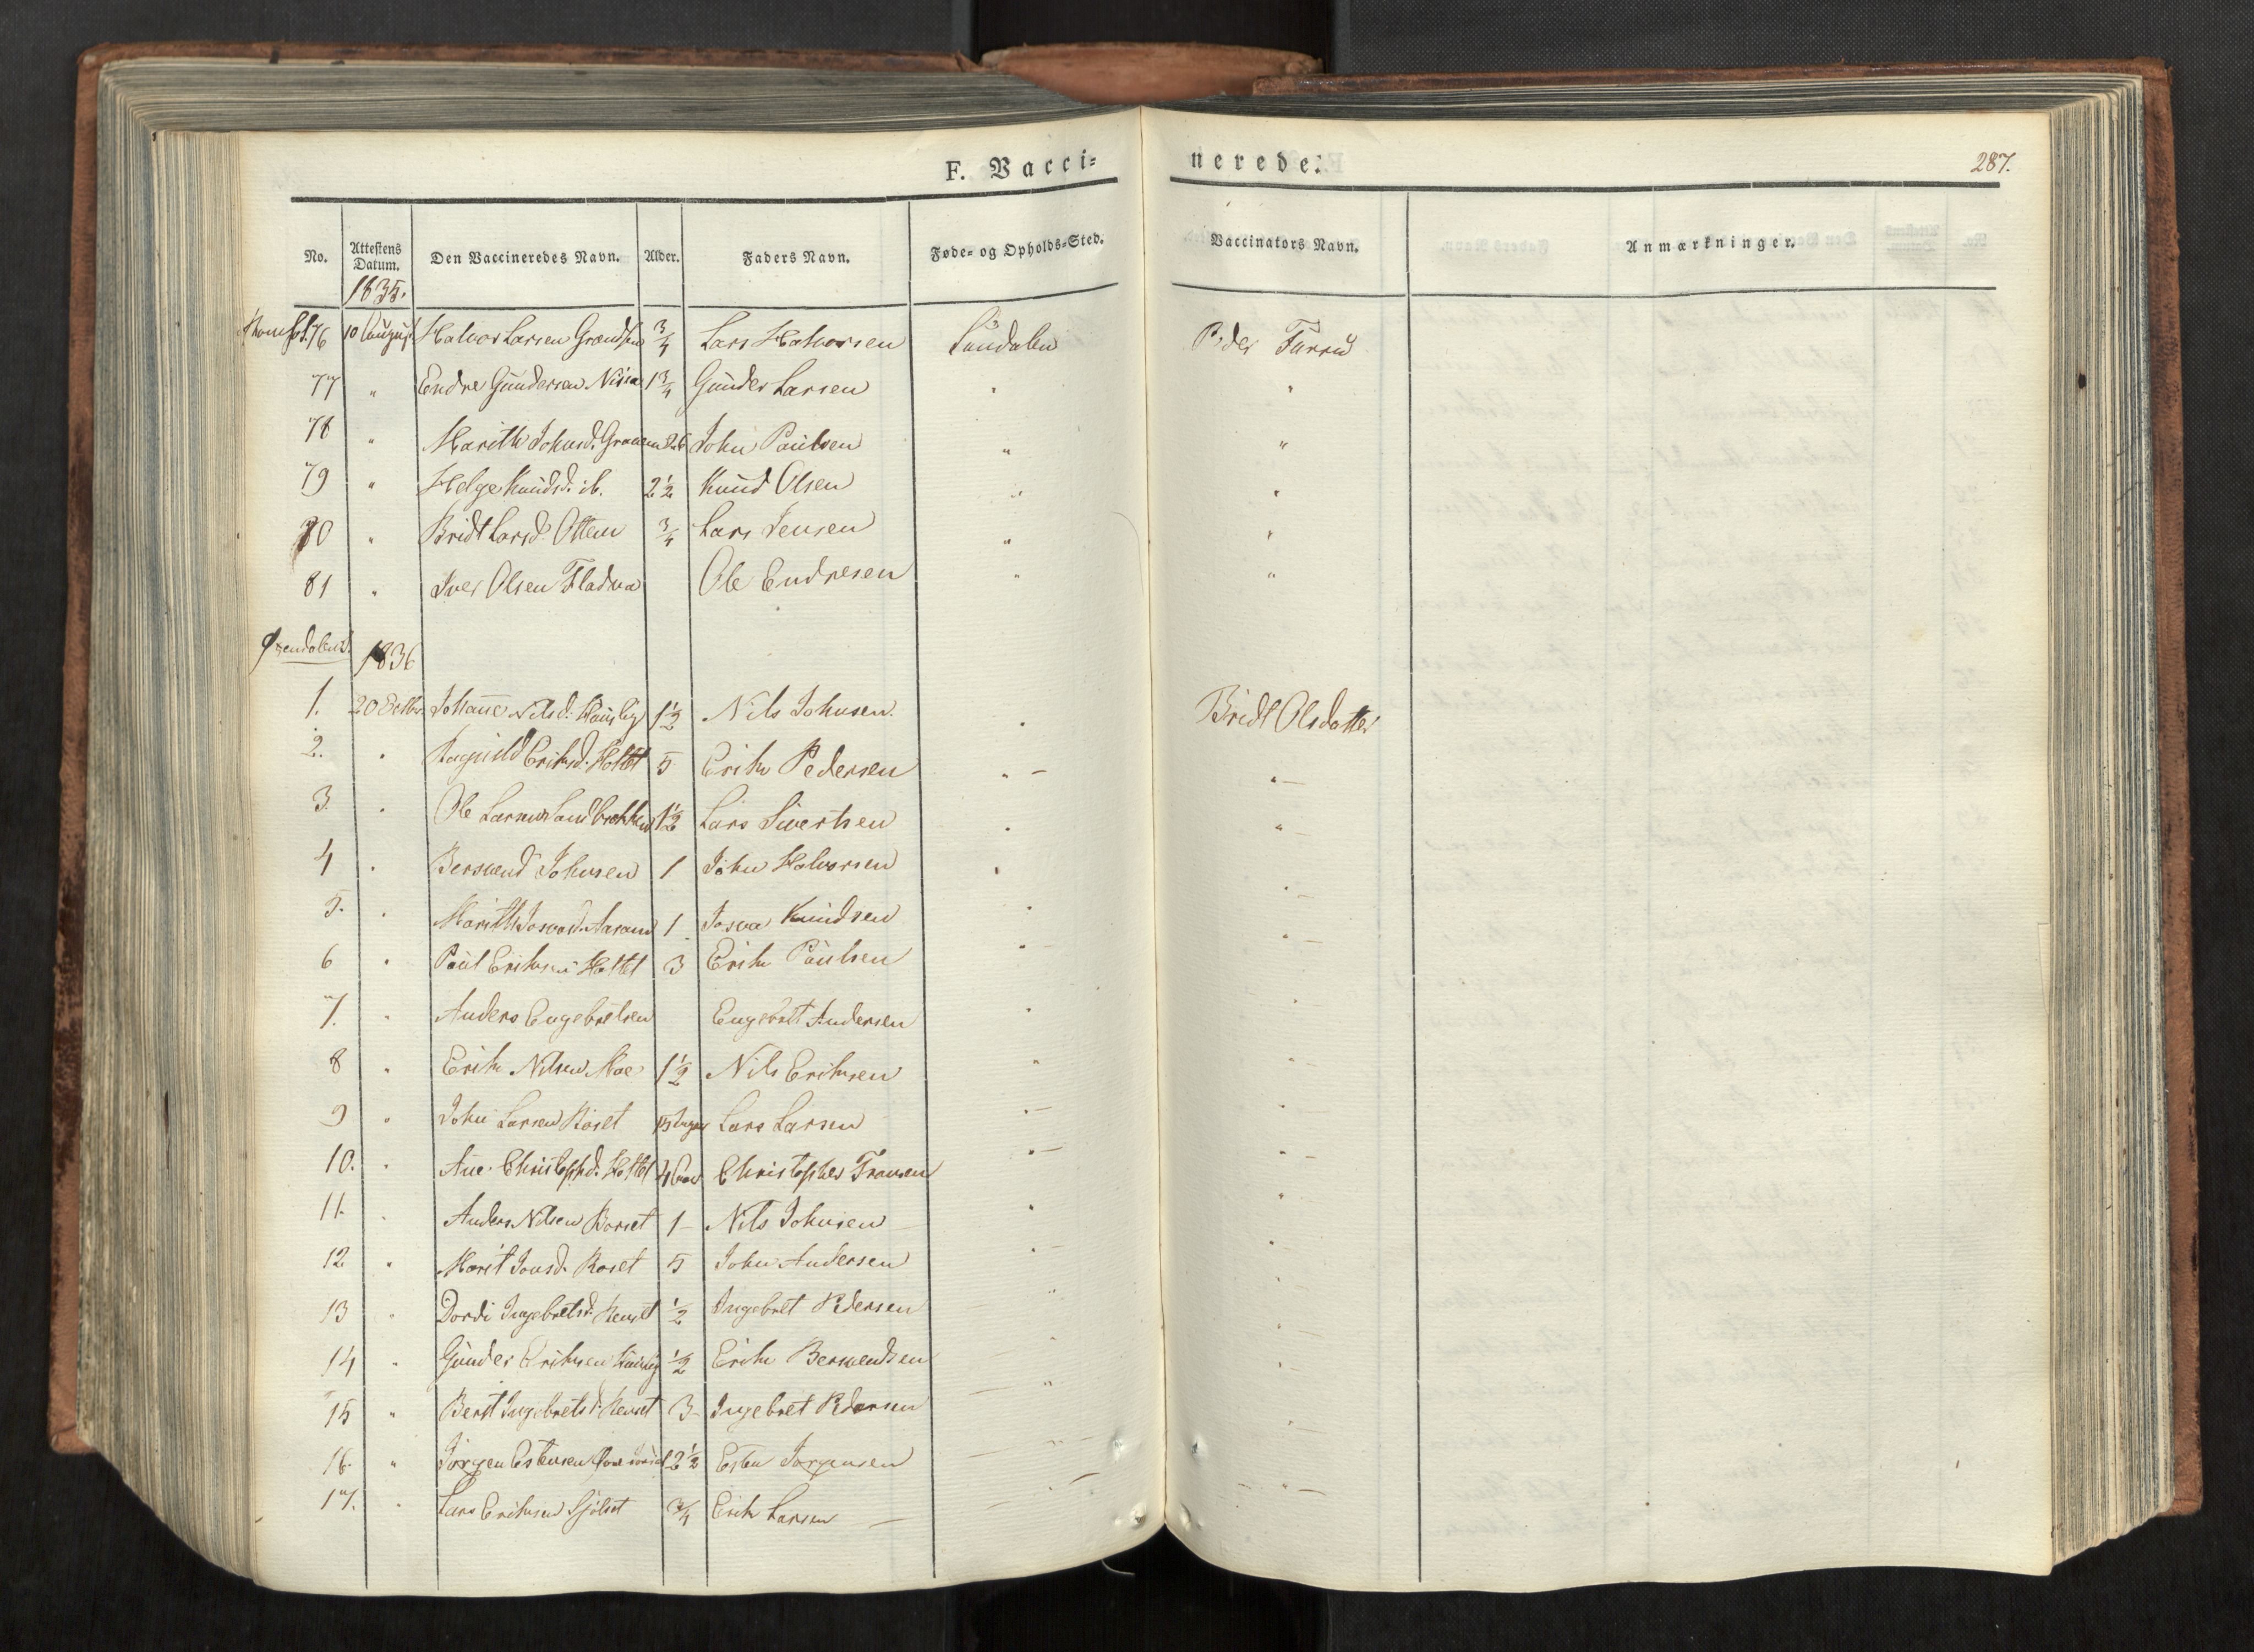 F. Vacci= nerede. 287.
No. Attestens Datum. Den Vaccineredes Navn. Alder. Faders Navn. Føde- og Opholds-Sted. Vaccinators Navn. Anmærkninger.
1835.
76 10 August Halvor Larsen 3/4 Lars Halvorsen Sundalen Peder Furru
77 " Endre Gundersen Nisia 1 3/4 Gunder Larsen " "
78 " Marith Johnsd. John Paulsen " "
79 " Helge Knudsd. ib. 2 1/2 Knud Olsen " "
80 " Bridt Larsd. Ottem 3/4 Lars Jensen " "
81 " Iver Olsen Fladva Ole Endresen " "
1836
1. 20 Octbr. Johanne Nilsd. 1 1/2 Nils Johnsen " Bridt Olsdatter
2. " Ragnild Eriksd. Hottet 5 Erik Pedersen " - " -
3. " Ole Larsen 1 1/2 Lars Sivertsen " " -
4 " Bersvend Johnsen 1 John Halvorsen " " -
5. " Marith Josvad. 1 Josva Knudsen " " -
6 " Paul Eriksen Hottet 3 Erik Paulsen " - "
7. " Anders Engebretsen Engebret Andersen " "
8 " Erik Nilsen Moe 1 1/2 Nils Eriksen " "
9 " John Larsen Roset Lars Larsen " - "
10. " Ane Christophd. Hottet Christopher Fransen " - " -
11. " Anders Nilsen Borset 1 - Nils Johnsen - " "
12. " Marit Jonsd. Roset 5 John Andersen " - "
13 " Dordi Ingebretsd. 1/2 Ingebret Pedersen " " -
14 " Gunder Eriksen 1/2 Erik Bersvendsen " " -
15 " Berit Ingebretsd. 3 - Ingebret Pedersen " "
16. " Jørgen Estensen 2 1/2 Esten Jørgensen
17. " Lars Eriksen Sjølset 3/4 Erik Larsen -